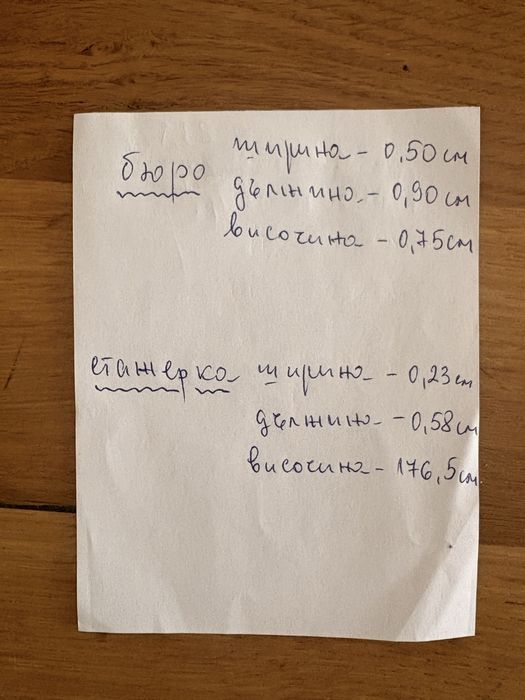 бюро ширина - 0,50 см
дължина - 0,90 см
височина - 0,75 см
етажерка ширина - 0,23 см
дължина - 0,58 см
височина - 176,5 см